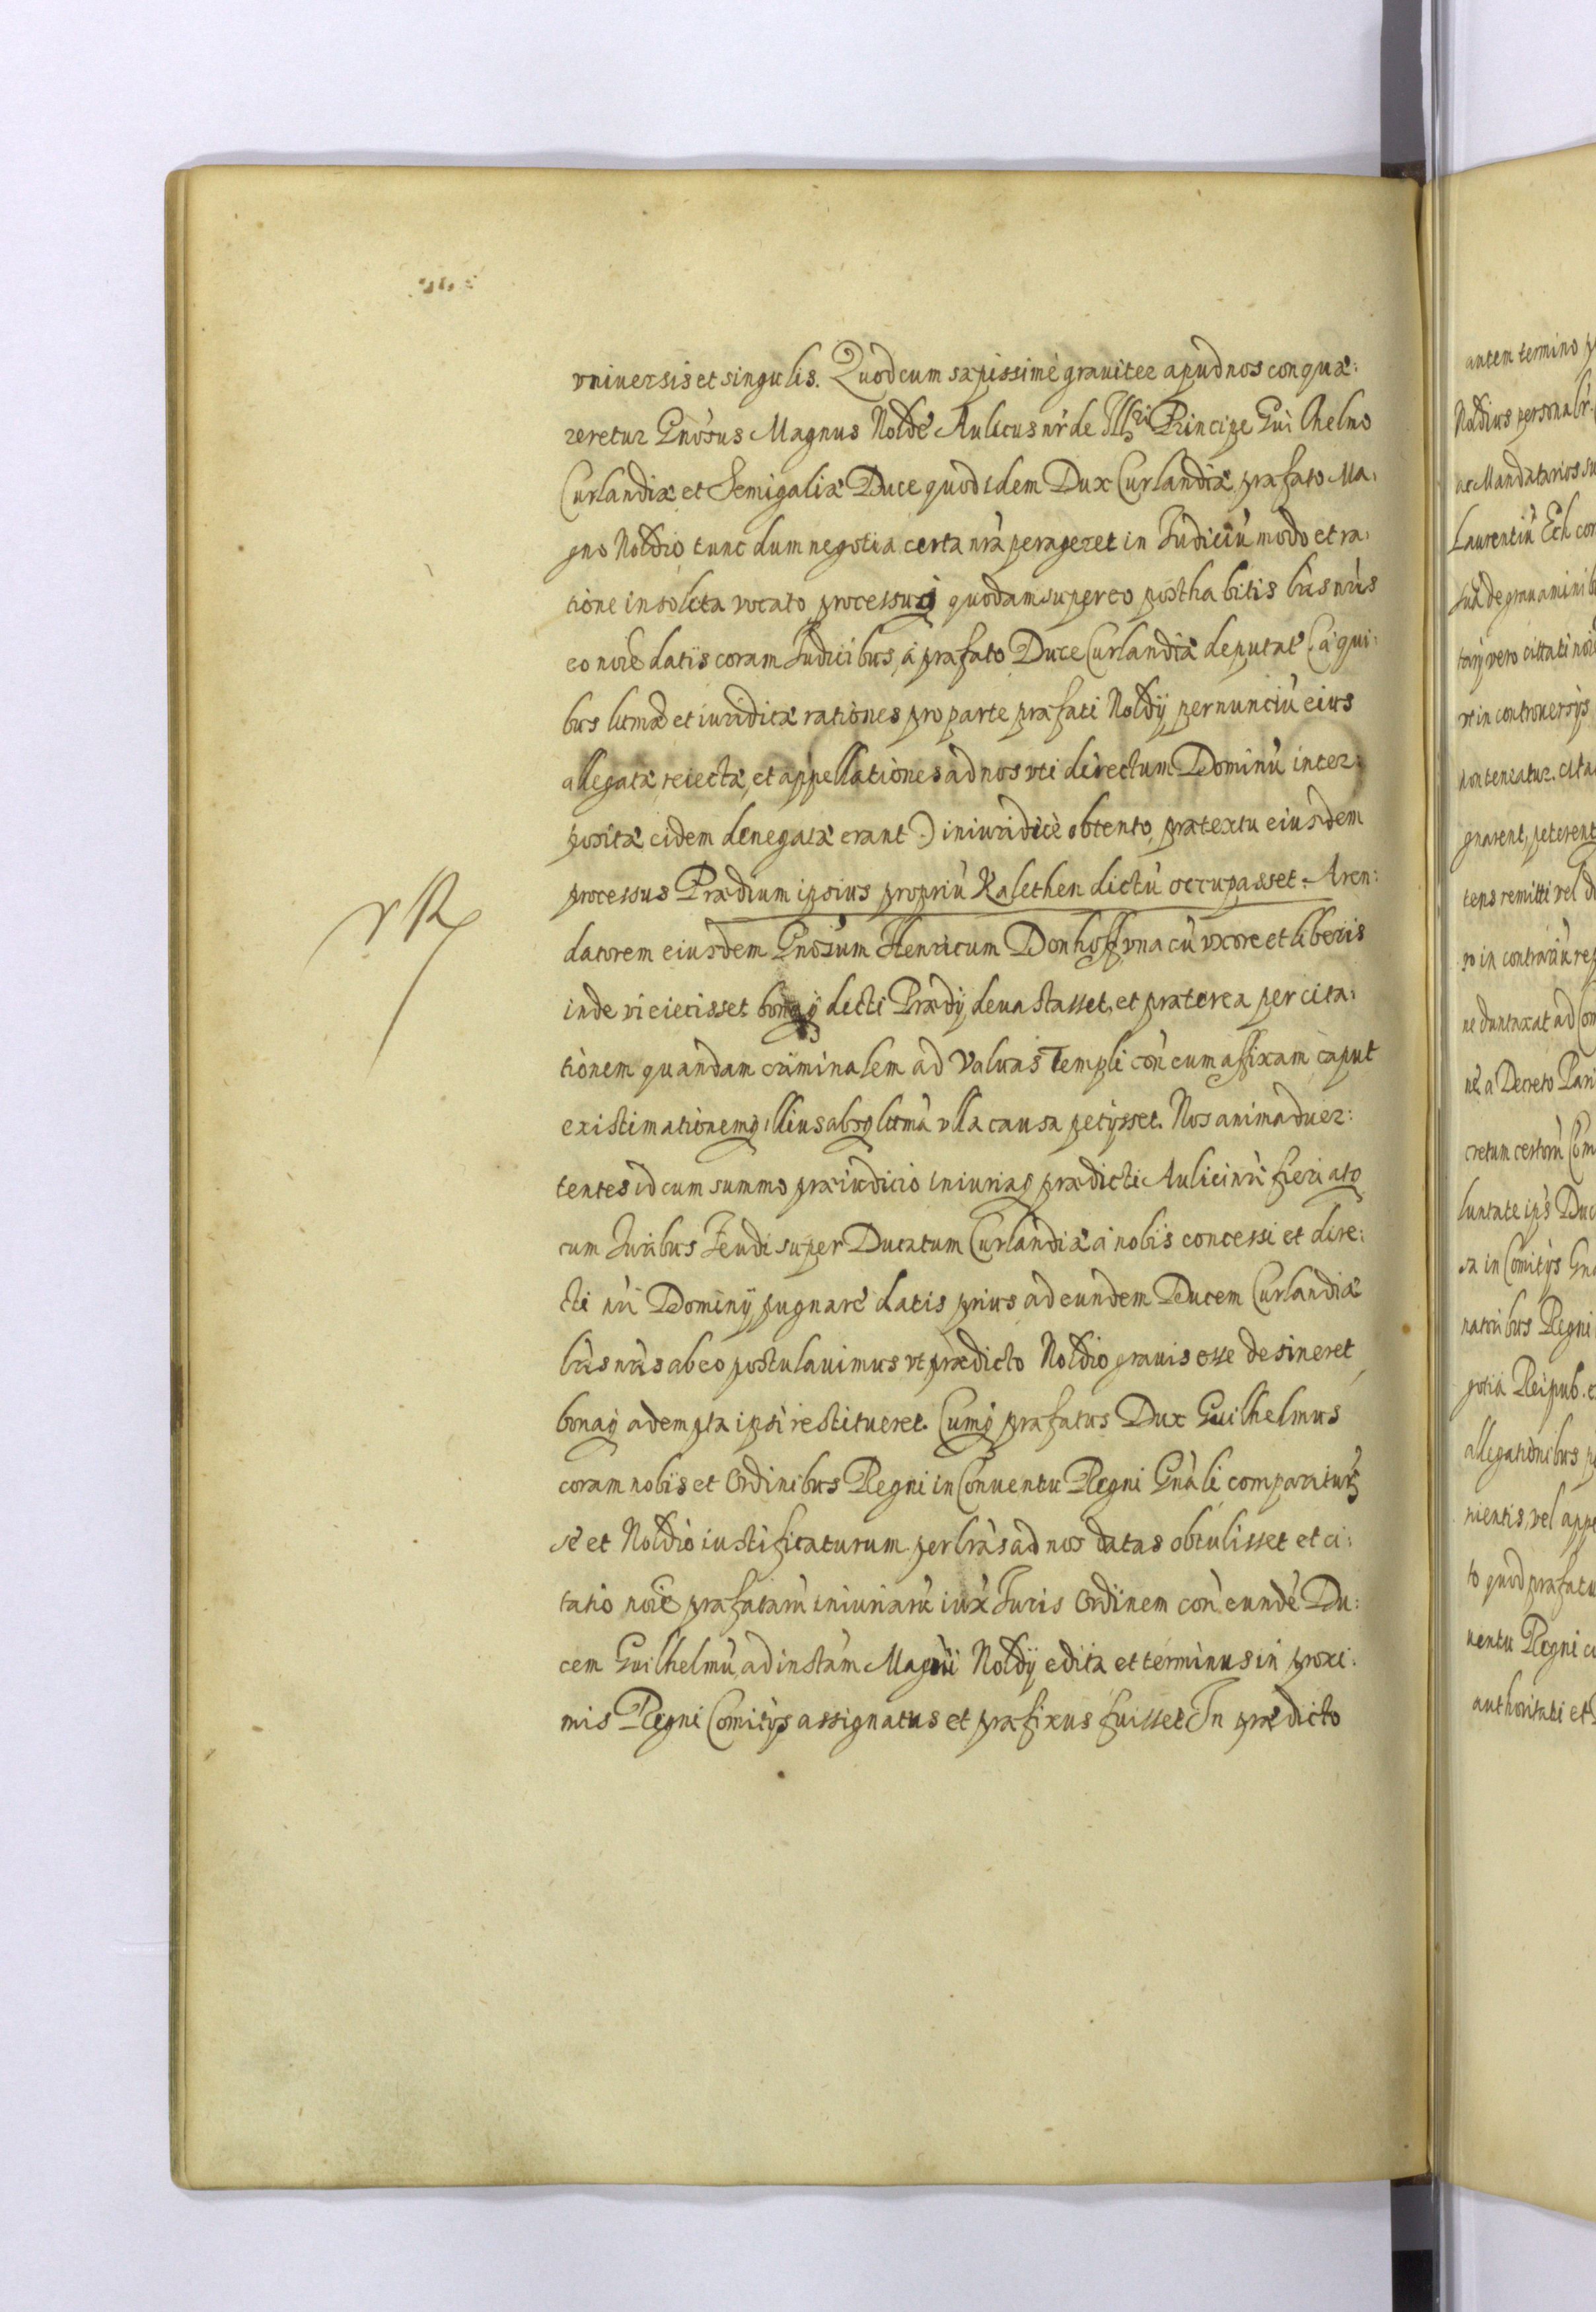 vniuersis et singulis. Quod cum sæpissimè grauiter apud nos conquæ:
reretur Gnõsus Magnus Noldè Aulicus nr̃ de Illri Principe Guilhelmo
Curlandiæ et Semigaliæ Duce quod idem Dux Curlandiæ præfato Ma:
gno Noldio tunc dum negotia certa nrà perageret in Iudiciũ modo et ra:
tione insolita vocato processuq́ quodam super eo posthabitis lris nris
eo noiẽ datis coram Iudicibus, à præfato Duce Curlandiæ deputat̃ (à qui:
bus litmæ et iuridicæ rationes pro parte præfati Noldij per nunciũ eius
allegatæ reiectæ, et appellationes ad nos vti directum Dominũ inter:
positæ eidem denegatæ erant) iniuridicè obtento, prætextu eiusdem
processus Prædium ipsius propriũ Kalethen dictũ occupasset. Aren:
datorem eiusdem Gnõsum Henricum Donhoff vna cũ vxore et liberis
inde vi eiecisset bonaq́ dicti Prædij deuastasset, et præterea per cita:
tionem quandam criminalem ad Valuas Templi coñ eum affixam caput
existimationemq́ illius absq́ litmà vlla causa petijsset. Nos animaduer:
tentes id cum summo præiudicio iniuriaq́ prædicti Aulici nri fieri atq́
cum Iuribus Feudi super Ducatum Curlandiæ à nobis concessi et dire:
cti nri Dominij pugnare datis prius ad eundem Ducem Curlandiæ
lris nris ab eo postulauimus vt prædicto Noldio grauis esse desineret,
bonaq́ adempta ipsi restitueret. Cumq́ præfatus Dux Guilhelmus
coram nobis et Ordinibus Regni in Conuentu Regni Gnãli compariturũ
sè et Noldio iustificaturum per lràs ad nos datas obtulisset et ci:
tatio noiẽ præfatarũ iniuriarũ iuxà Iuris Ordinem coñ eundẽ Du:
cem Guilhelmũ, ad instãm Magni Noldij edita et terminus in proxi:
mis Regni Comitijs assignatus et præfixus fuisset In prædicto
autem termino
Noldius personalr̃
ac Mandatarios su
Laurentiũ Eck con
sua de grauaminib
tarij vero cittati noiẽ
vt in controuersijs
non teneatur. cita
gnarent, peterent
tens remitti vel di
ro in contrariũ res
ne duntaxat ad Com
nè a Decreto Pari
cretum certorũ Com
luntate ips̃ Duc
sa in Comitijs Gn
natoribus Regni
gotia Reipub. e
allegationibus p
nientis, vel appe
to quod præfatu
uentu Regni co
authoritati et